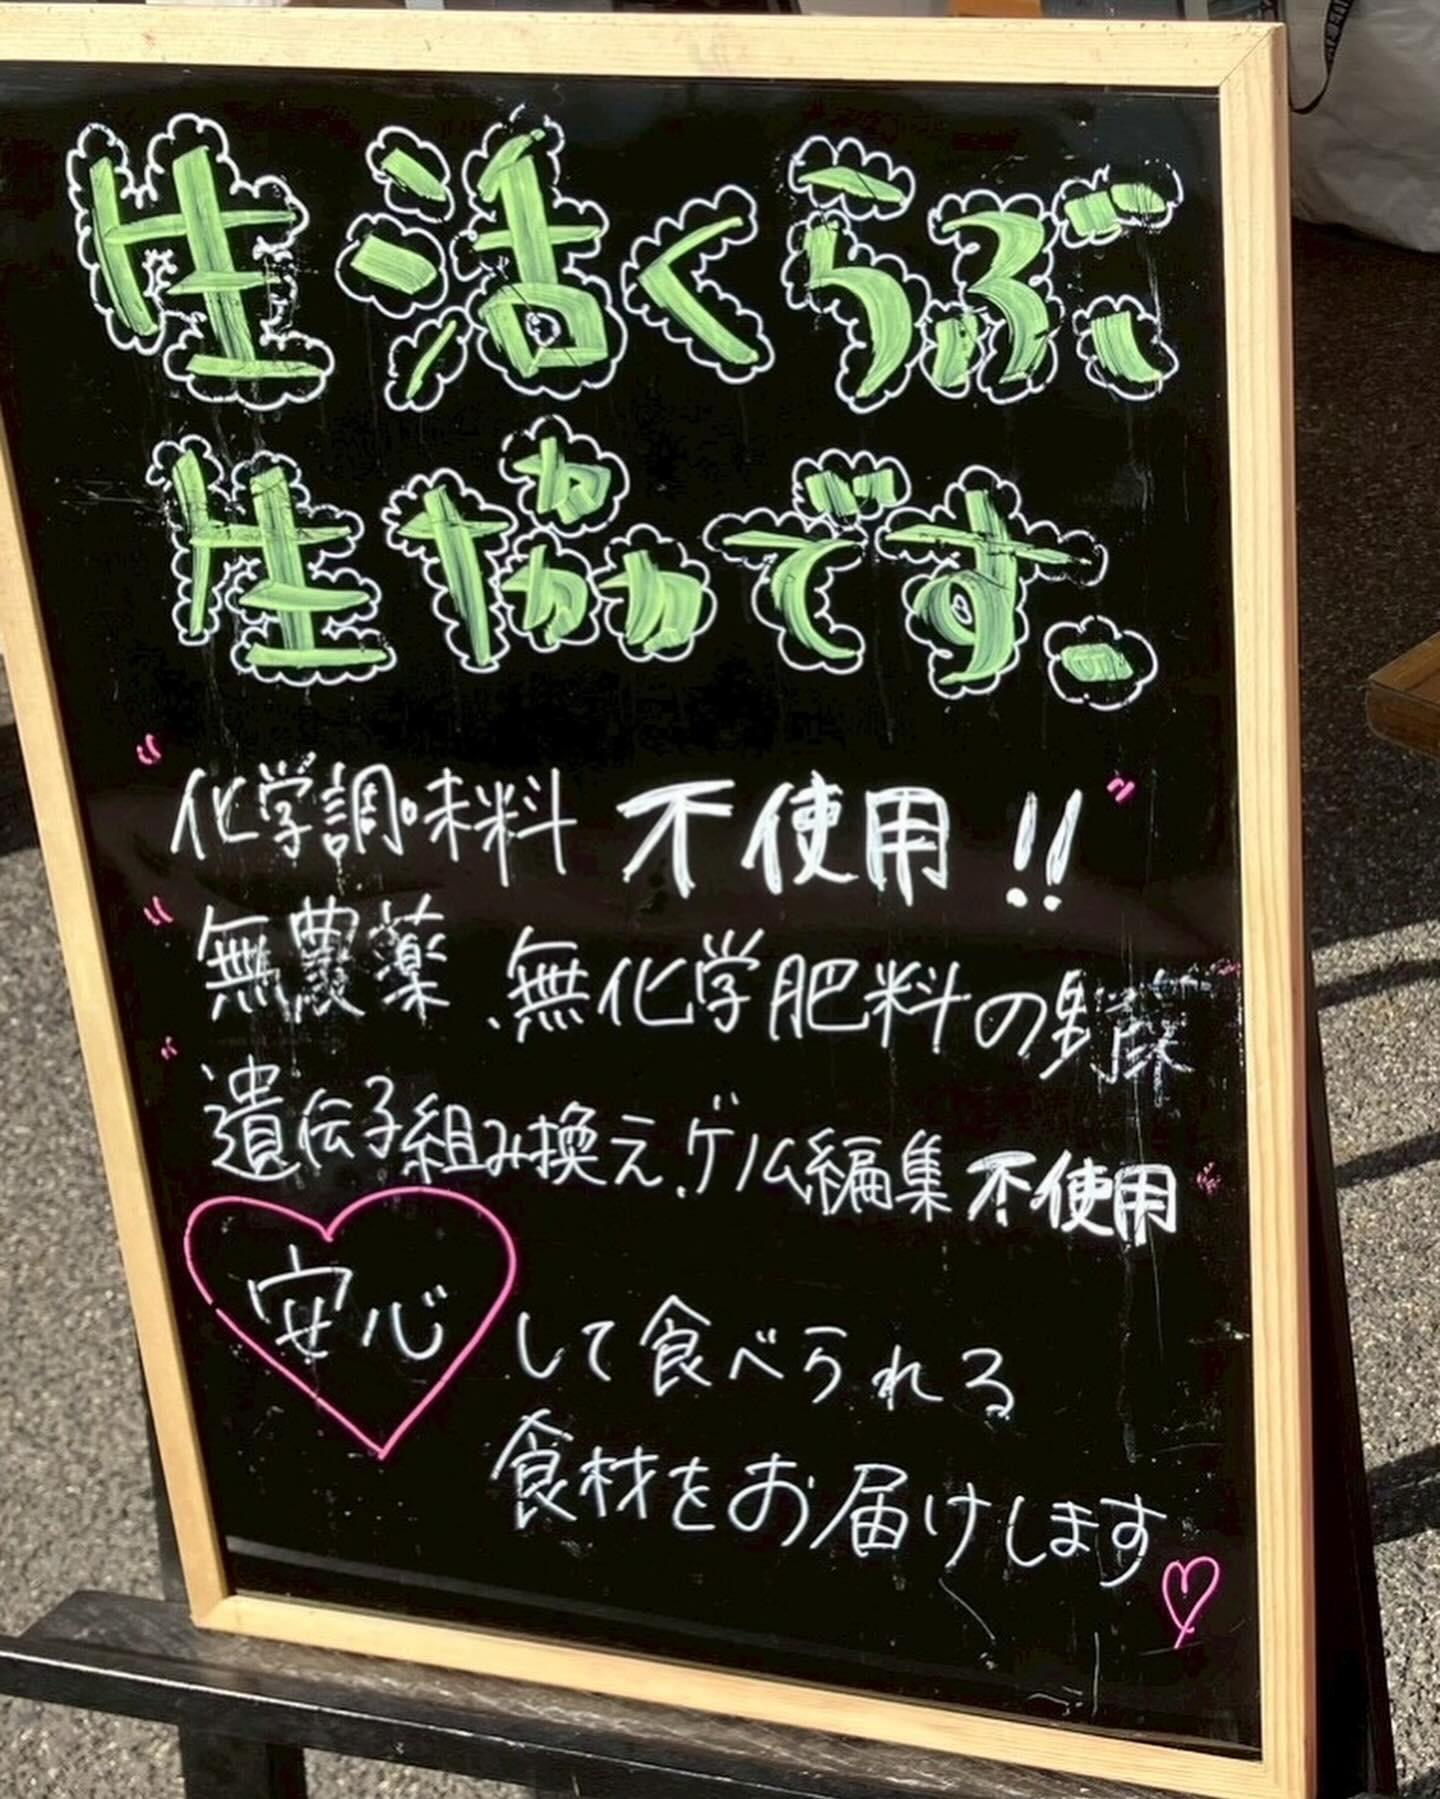 生活くらぶ
生協です。
〝化学調味料 不使用!!〞
〝無農薬、無化学肥料の野菜〞
〝遺伝子組み換え、ゲノム編集不使用〞
安心して食べられる
食材をお届けします